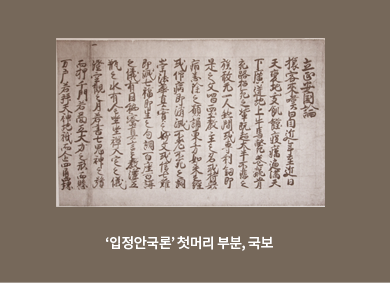 立正安國論
旅客来嘆曰自近年至近日
天変地夭飢饉疫癘遍満天
下廣迸地上牛馬斃巷骸骨
充路招死之輩既超太半不悲之
族敢无一人然間或専利剣即
是之文唱西土教主之名或持衆
病悉除之願誦東方如来之経
或仰病即消滅不老不死之詞
崇法華真実之妙文或信七難
即滅七福即生之句調百座百講
之儀有因秘密真言之教灑五
瓶之水有全坐禅入定之儀
澄空観之月若書七鬼神之号
而押千門若図五大力之形而懸
万戸若拝天神地祇而企四角四堺
‘입정안국론’ 첫머리 부분, 국보